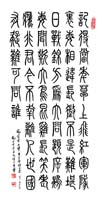 記得當年草上飛紅軍隊
裏每相違長征不是難堪
日戰錦方為大問題斥鷃
每聞欺大鳥昆雞長笑老
鷹非君今不幸離人世國
有疑難可問誰